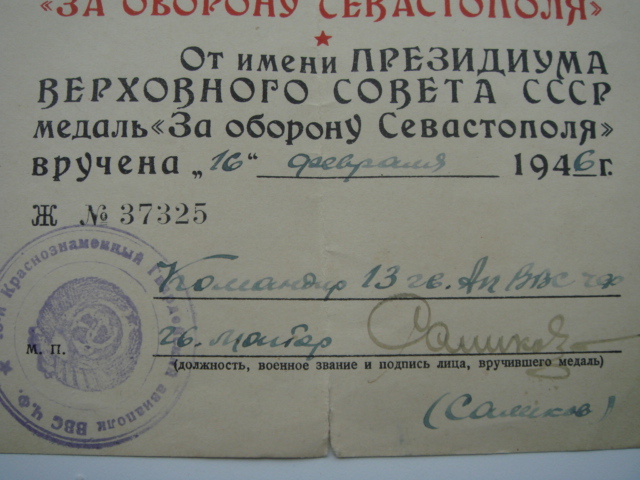 «ЗА ОБОРОНУ СЕВАСТОПОЛЯ»
От имени ПРЕЗИДИУМА
ВЕРХОВНОГО СОВЕТА СССР
медаль «За оборону Севастополя»
вручена „16“ февраля 1946 г.
Ж № 37325
Командир 13 гв. Ап ВВС ЧФ
гв. майор
М. П.
(должность, военное звание и подпись лица, вручившего медаль)
(Саликов)
Краснознаменный авиаполк ВВС Ч.Ф.